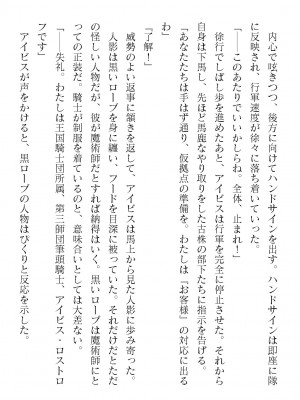 内心で呟きつつ、後方に向けてハンドサインを出す。ハンドサインは即座に隊
に反映され、行軍速度が徐々に落ちていった。
「――このあたりでいいかしらね。全体、止まれ！」
徐行でしばし歩を進めたあと、アイビスは行軍を完全に停止させた。それから
自身は下馬し、先ほど馬鹿なやり取りをした古株の部下たちに指示を告げる。
「あなたたちは手はず通り、仮拠点の準備を。わたしは『お客様』の対応に出る
わ」
『了解！』
威勢のよい返事に頷きを返して、アイビスは馬上から見た人影に歩み寄った。
人影は黒いローブを身に纏い、フードを目深に被っていた。それだけだとただ
の怪しい人物だが、彼が魔術師だとすれば納得はいく。黒いローブは魔術師にと
っての正装だ。騎士が制服を着ているのと、意味合いとしては大差ない。
「――失礼。わたしは王国騎士団所属、第三師団筆頭騎士、アイビス・ロストロ
フです」
アイビスが声をかけると、黒ローブの人物はぴくりと反応を示した。